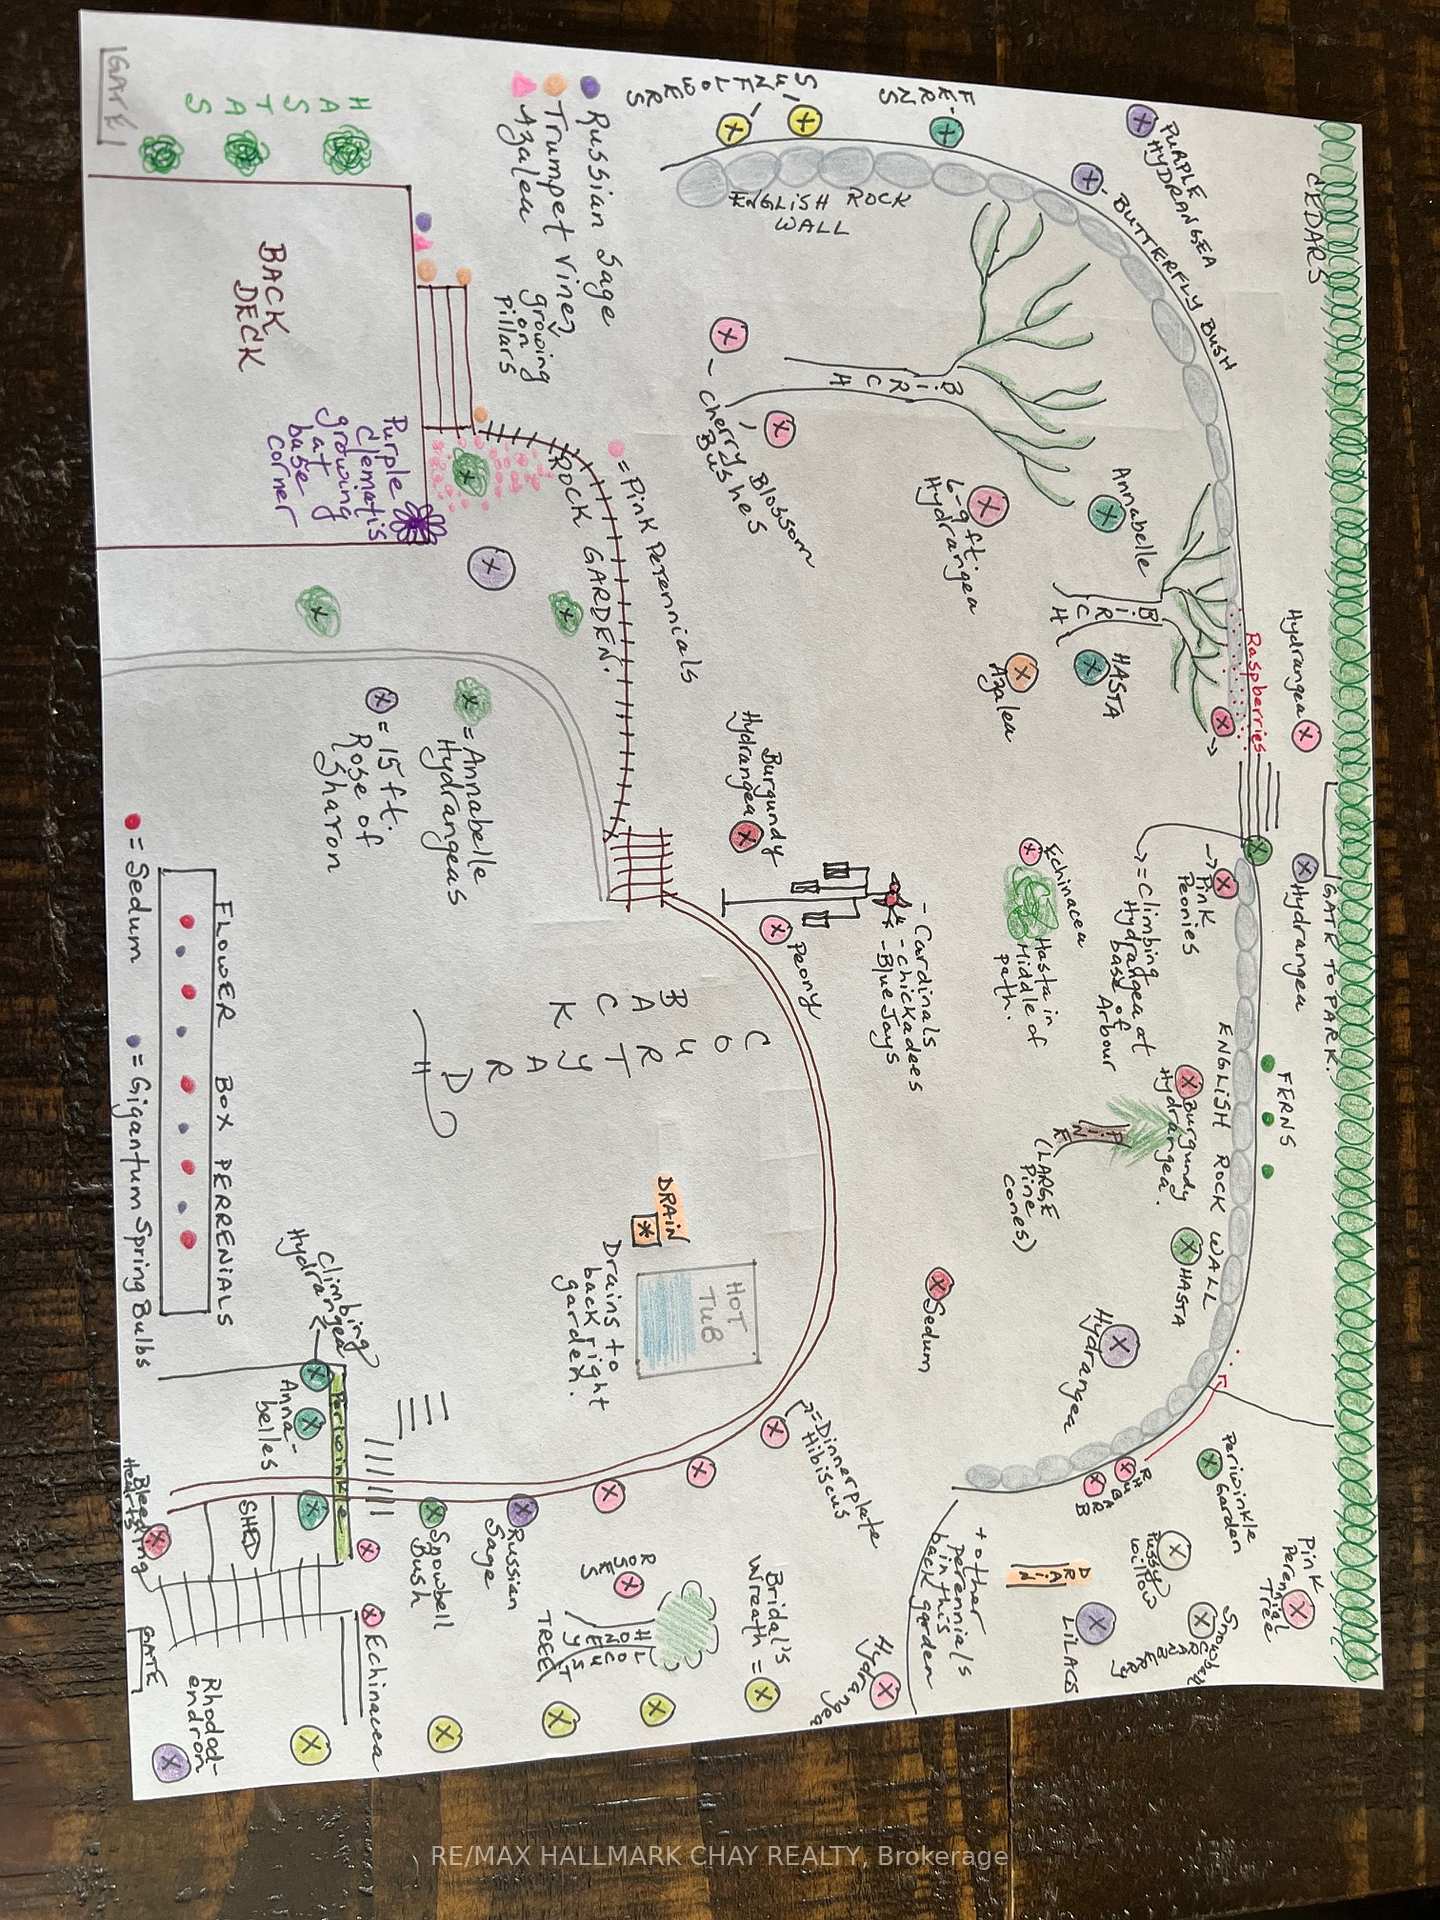 CEDARS
GATE TO PARK.
PURPLE
HYDRANGEA
BUTTERFLY BUSH
FERNS
SUNFLOWERS
ENGLISH ROCK
WALL
BIRCH
Cherry Blossom
Bushes
6-9 ft.
Hydrangea
Annabelle
BIRCH
HASTA
Azalea
Raspberries
Hydrangea
Hydrangea
Pink
Peonies
= Climbing
Hydrangea at
base of
Arbour
Echinacea
Hasta in
Middle of
path.
FERNS
ENGLISH ROCK WALL
Burgundy
Hydrangea.
PINE
(LARGE
Pine
cones)
HASTA
Hydrangea
Sedum
Periwinkle
Garden
RHUBARB
Pussy
Willow
DRAIN
LILACS
Pink
Perennial
Tree
+ other
perennials
in this
back garden
Hydrangea
Burgundy
Hydrangea
- Cardinals
- chickadees
- Blue Jays
Peony
= Dinnerplate
Hibiscus
Bridal's
Wreath =
ROSES
HONEYLOCUST
TREE
Russian
Sage
Snowbell
Bush
Echinacea
Rhodod-
endron
GATE
SHED
Bleeding
Hearts
Periwinkle
Anna-
belles
Climbing
Hydrangea
HOT
TUB
DRAIN
Drains to
back right
garden.
BACK
COURTYARD
Russian Sage
Trumpet Vines
growing
on
Pillars
Azalea
= Pink Perennials
ROCK GARDEN.
GATE
HASTAS
BACK
DECK
Purple
Clematis
growing
at
base
corner
= Annabelle
Hydrangeas
= 15 ft.
Rose of
Sharon
FLOWER BOX PERRENIALS
= Sedum
= Gigantum Spring Bulbs
RE/MAX HALLMARK CHAY REALTY, Brokerage